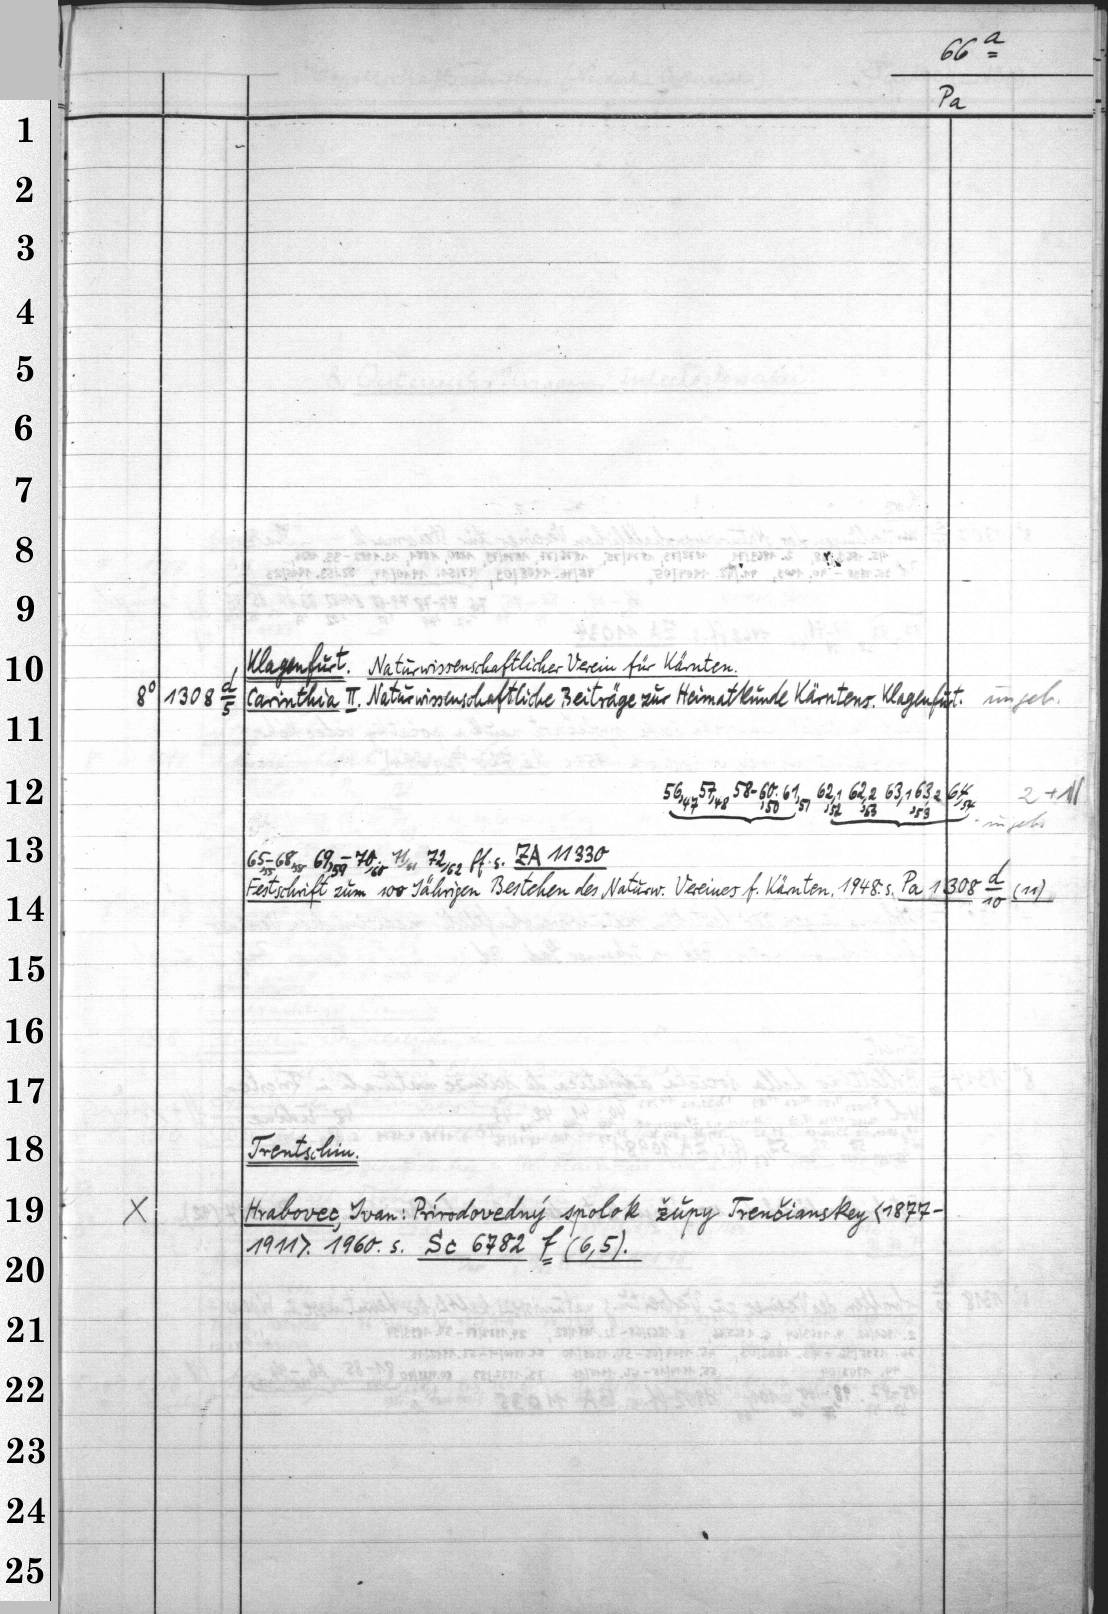 66 a
Pa
1
2
3
4
5
6
7
8
9
10 Klagenfurt. Naturwissenschaftlicher Verein für Kärnten.
8° 1308 d/5 Carinthia II. Naturwissenschaftliche Beiträge zur Heimatkunde Kärntens. Klagenfurt. ungeb.
11
12 56,47 57,48 58-60,50 61,51 62,1,52 62,2,53 63,1 63,2,53 64,54 2 + 11
ungeb.
13 65-68,58 69,59-70,60 71/61 72/62 ff. s. ZA 11330
Festschrift zum 100 Jährigen Bestehen des Naturw. Vereines f. Kärnten. 1948. s. Pa 1308 d/10 (11)
14
15
16
17
18 Trentschin.
19 X Hrabovec, Ivan: Prírodovedný spolok župy Trenčianskey <1877-
1911>. 1960. s. Sc 6782 f (6,5).
20
21
22
23
24
25